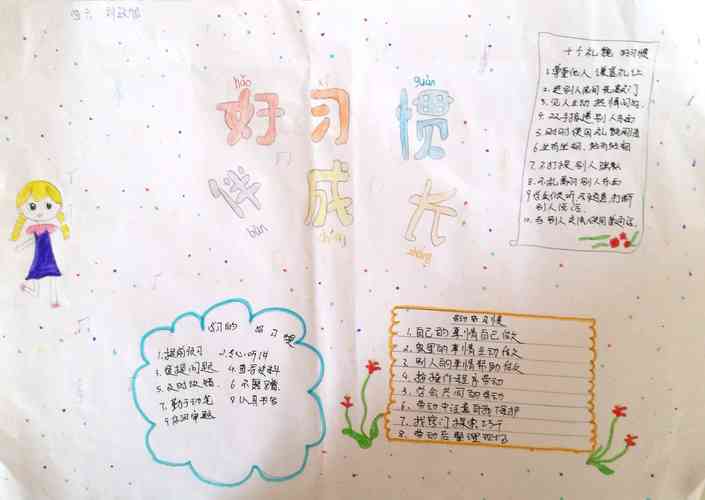 四六
hǎo xí guàn
好习惯
伴成长
bàn chéng zhǎng
十个礼貌好习惯
1.尊重他人 谦恭礼让
2.进别人房间先敲门
3.见人主动热情问好
4.双手接递别人东西
5.时时使用礼貌用语
6.坐有坐相，站有站相
7.不打扰别人
8.不乱翻别人东西
9.学会倾听，不随意打断
别人说话
10.与别人交流使用普通话
学习的好习惯
1.提前预习 2.专心听讲
3.爱提问题 4.
5.及时 6.不
7.勤于动笔 8.认真书写
9.审题
劳动好习惯
1.自己的事情自己做
2.家里的事情主动做
3.别人的事情帮助做
4.按操作程序劳动
5.学会共同劳动
6.劳动中注意自我保护
7.找窍门探索技巧
8.劳动后整理现场